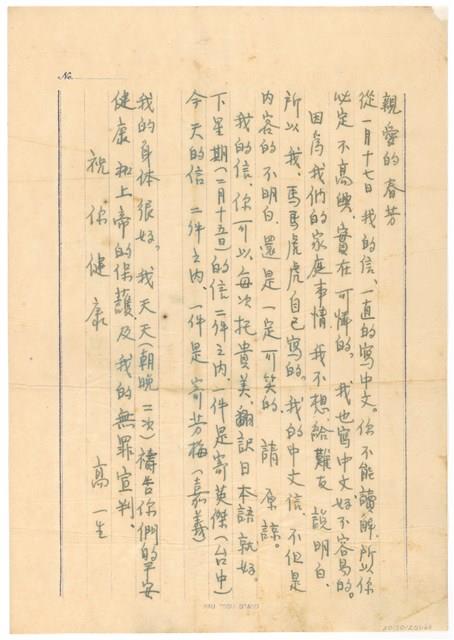 親愛的春芳
從一月十七日我的信、一直的寫中文。你不能讀解、所以你
必定不高興、實在可憐的。我也寫中文、好不容易的。
因為我們的家庭事情、我不想給難友說明白、
所以我、馬馬虎虎自己寫的。我的中文信、不但是
內容的不明白、還是一定可笑的、請原諒。
我的信、你可以每次托貴美、翻訳日本語就好。
下星期(二月十五日)的信二件之內、一件是寄英傑(台中)
今天的信二件之內、一件是寄芳梅(嘉義)
我的身体很好。我天天(朝晚二次)禱告你們的平安
健康和上帝的保護及我的無罪宣判、
祝你健康
高一生
No.